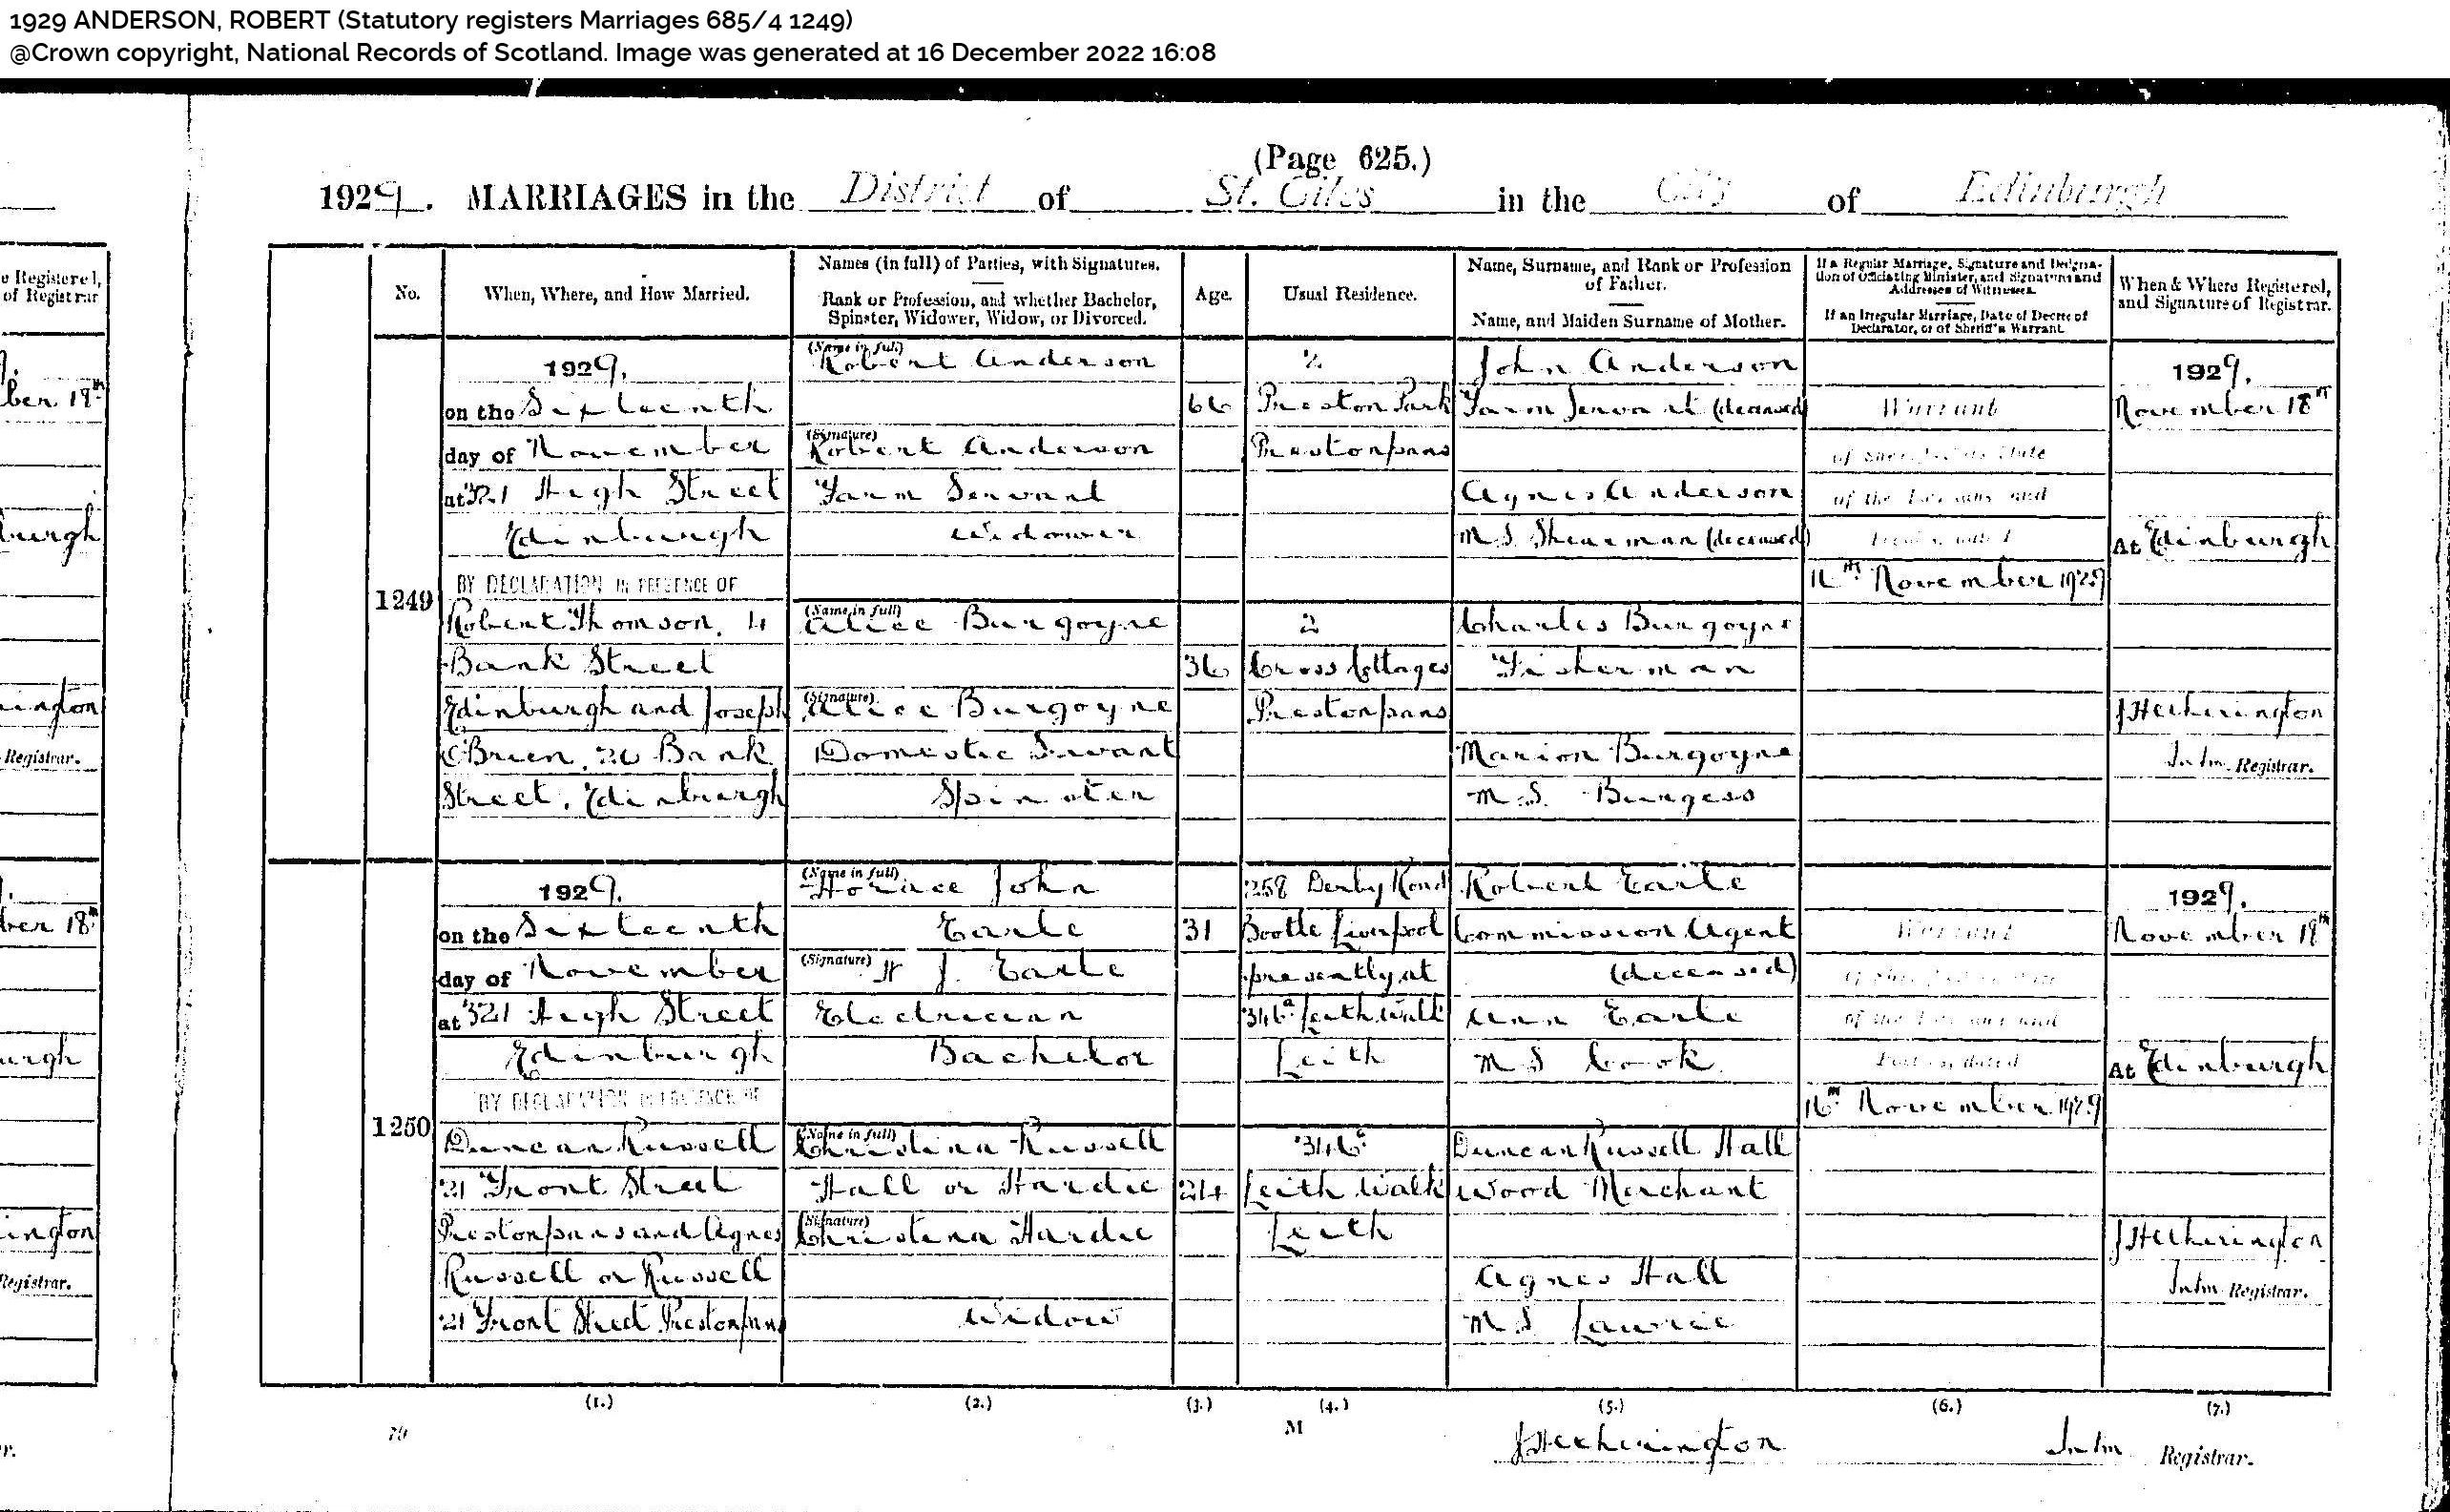 1929 ANDERSON, ROBERT (Statutory registers Marriages 685/4 1249)
@Crown copyright, National Records of Scotland. Image was generated at 16 December 2022 16:08
(Page 625.)
1929. MARRIAGES in the District of St. Giles in the City of Edinburgh
No.
When, Where, and How Married.
Names (in full) of Parties, with Signatures.
Rank or Profession, and whether Bachelor,
Spinster, Widower, Widow, or Divorced.
Age.
Usual Residence.
Name, Surname, and Rank or Profession
of Father.
Name, and Maiden Surname of Mother.
If a Regular Marriage, Signature and Designa-
tion of Officiating Minister, and Signatures and
Addresses of Witnesses.
If an Irregular Marriage, Date of Decree of
Declarator, or of Sheriff's Warrant.
When & Where Registered,
and Signature of Registrar.
1249
1929.
on the Sixteenth
day of November
at 321 High Street
Edinburgh
BY DECLARATION IN PRESENCE OF
Robert Thomson, 4
Bank Street
Edinburgh and Joseph
O'Brien, 20 Bank
Street, Edinburgh
(Name in full)
Robert Anderson
(Signature)
Robert Anderson
Farm Servant
Widower
(Name in full)
Alice Burgoyne
(Signature)
Alice Burgoyne
Domestic Servant
Spinster
66
36
2
Preston Park
Prestonpans
2
Cross Cottages
Prestonpans
John Anderson
Farm Servant (deceased)
Agnes Anderson
M.S. Shearman (deceased)
Charles Burgoyne
Fisherman
Marion Burgoyne
M.S. Burgess
Warrant
of Sheriff Substitute
of the Lothians and
Peebles, dated
16th November 1929
1929.
November 18th
At Edinburgh
J Hetherington
Intm. Registrar.
1250
1929.
on the Sixteenth
day of November
at 321 High Street
Edinburgh
BY DECLARATION IN PRESENCE OF
Duncan Russell
21 Front Street
Prestonpans and Agnes
Russell or Russell
21 Front Street Prestonpans
(Name in full)
Horace John
Earle
(Signature) H J. Earle
Electrician
Bachelor
(Name in full)
Christina Russell
Hall or Hardie
(Signature)
Christina Hardie
Widow
31
24
258 Derby Road
Bootle Liverpool
presently at
346a Leith Walk
Leith
346a
Leith Walk
Leith
Robert Earle
Commission Agent
(deceased)
Ann Earle
M S Cook
Duncan Russell Hall
Wood Merchant
Agnes Hall
M.S. Lawrie
Warrant
of Sheriff Substitute
of the Lothians and
Peebles, dated
16th November 1929
1929.
November 18th
At Edinburgh
J Hetherington
Intm. Registrar.
(1.) (2.) (3.) (4.) (5.) (6.) (7.)
M
J Hetherington Intm Registrar.